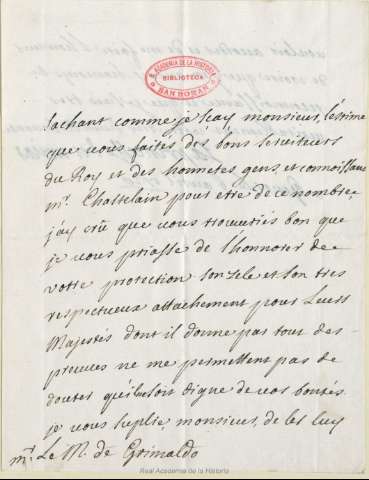 R. ACADEMIA DE LA HISTORIA
BIBLIOTECA
SAN ROMAN
Sachant comme je scay monsieur, l'estime
que vous faites des bons serviteurs
du Roy et des honnetes gens, et connoissant
mr. Chastelain pour etre de ce nombre,
j'ay crû que vous trouveriés bon que
je vous priasse de l'honnorer de
votre protection son zele et son tres
respectueux attachement pour Leurs
Majestés dont il donne par tout des
preuves ne me permettent pas de
douter qu'il ne soit digne de vos bontés.
je vous suplie monsieur, de les luy
mr. Le M. de Grimaldo
Real Academia de la Historia